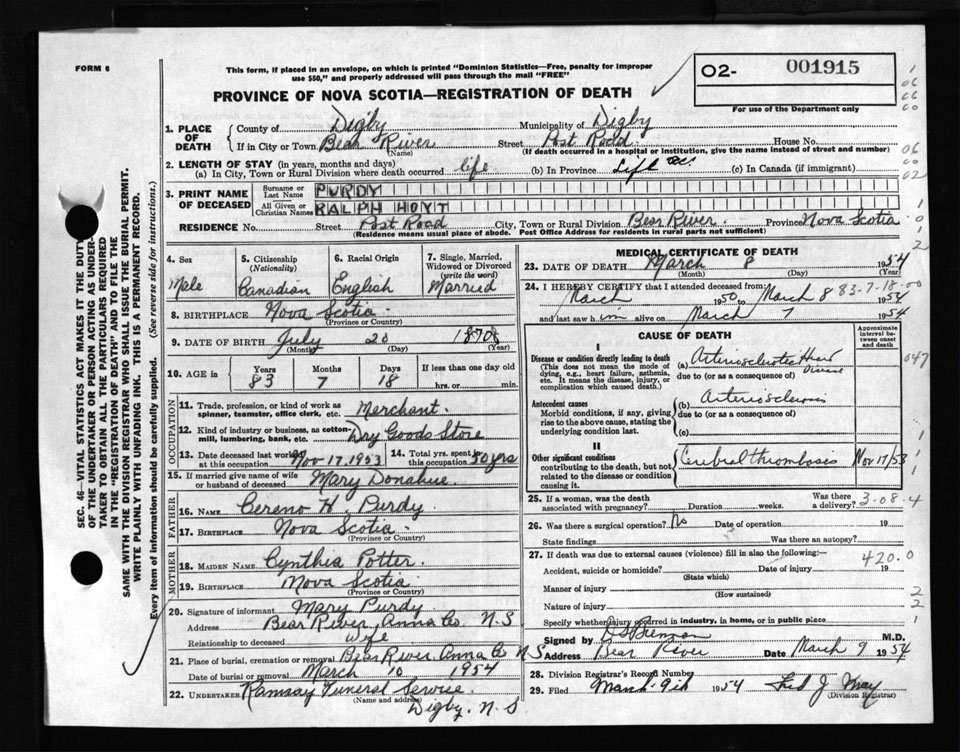 FORM 6
This form, if placed in an envelope, on which is printed "Dominion Statistics—Free, penalty for improper
use $50," and properly addressed will pass through the mail "FREE"
PROVINCE OF NOVA SCOTIA—REGISTRATION OF DEATH
O2- 001915
For use of the Department only
1. PLACE OF DEATH
County of Digby Municipality of Digby
If in City or Town Bear River (Name) Street Post Road House No.
(If death occurred in a hospital or institution, give the name instead of street and number)
2. LENGTH OF STAY (in years, months and days)
(a) In City, Town or Rural Division where death occurred life (b) In Province Life (c) In Canada (if immigrant)
3. PRINT NAME OF DECEASED
Surname or Last Name PURDY
All Given or Christian Names RALPH HOYT
RESIDENCE No. Street Post Road City, Town or Rural Division Bear River Province Nova Scotia
(Residence means usual place of abode. Post Office Address for residents in rural parts not sufficient)
4. Sex
Male
5. Citizenship (Nationality)
Canadian
6. Racial Origin
English
7. Single, Married, Widowed or Divorced (write the word)
Married
8. BIRTHPLACE Nova Scotia
(Province or Country)
9. DATE OF BIRTH July 20 1870
(Month) (Day) (Year)
10. AGE in
Years Months Days If less than one day old
83 7 18 hrs. or min.
OCCUPATION
11. Trade, profession, or kind of work as spinner, teamster, office clerk, etc. Merchant.
12. Kind of industry or business, as cotton-mill, lumbering, bank, etc. Dry Goods Store
13. Date deceased last worked at this occupation Nov. 17. 1953
14. Total yrs. spent in this occupation 50 yrs
15. If married give name of wife or husband of deceased Mary Donahue.
FATHER
16. NAME Cereno H. Purdy
17. BIRTHPLACE Nova Scotia.
(Province or Country)
MOTHER
18. MAIDEN NAME Cynthia Potter.
19. BIRTHPLACE Nova Scotia
(Province or Country)
20. Signature of informant Mary Purdy.
Address Bear River Anna Co. N.S
Relationship to deceased Wife
21. Place of burial, cremation or removal Bear River Anna Co N S
Date of burial or removal March 10 1954
22. UNDERTAKER Ramsay Funeral Service.
(Name and address)
Digby. N. S
MEDICAL CERTIFICATE OF DEATH
23. DATE OF DEATH March 8 1954
(Month) (Day) (Year)
83-7-18-00
24. I HEREBY CERTIFY that I attended deceased from
March 1950 to March 8 1954
and last saw him alive on March 7 1954
CAUSE OF DEATH
Approximate interval between onset and death
I
Disease or condition directly leading to death
(This does not mean the mode of dying, e.g., heart failure, asthenia, etc. It means the disease, injury, or complication which caused death.)
(a) Arteriosclerotic Heart Disease
due to (or as a consequence of)
047
Antecedent causes
Morbid conditions, if any, giving rise to the above cause, stating the underlying condition last.
(b) Arteriosclerosis
due to (or as a consequence of)
(c)
II
Other significant conditions
contributing to the death, but not related to the disease or condition causing it.
Cerebral thrombosis Nov 17/53
25. If a woman, was the death associated with pregnancy? Duration weeks. Was there a delivery?
3-08-4
26. Was there a surgical operation? No Date of operation 19
State findings Was there an autopsy?
27. If death was due to external causes (violence) fill in also the following:—
420.0
Accident, suicide or homicide? Date of injury 19
(State which)
Manner of injury
(How sustained)
Nature of injury
Specify whether injury occurred in industry, in home, or in public place
Signed by M.D.
Address Bear River Date March 9 1954
28. Division Registrar's Record Number
29. Filed March 9th 1954 Fred J. May
(Division Registrar)
SEC. 46—VITAL STATISTICS ACT MAKES IT THE DUTY
OF THE UNDERTAKER OR PERSON ACTING AS UNDER-
TAKER TO OBTAIN ALL THE PARTICULARS REQUIRED
IN THE "REGISTRATION OF DEATH" AND TO FILE THE
SAME WITH THE DIVISION REGISTRAR WHO SHALL ISSUE THE BURIAL PERMIT.
WRITE PLAINLY WITH UNFADING INK. THIS IS A PERMANENT RECORD.
Every item of information should be carefully supplied. (See reverse side for instructions.)